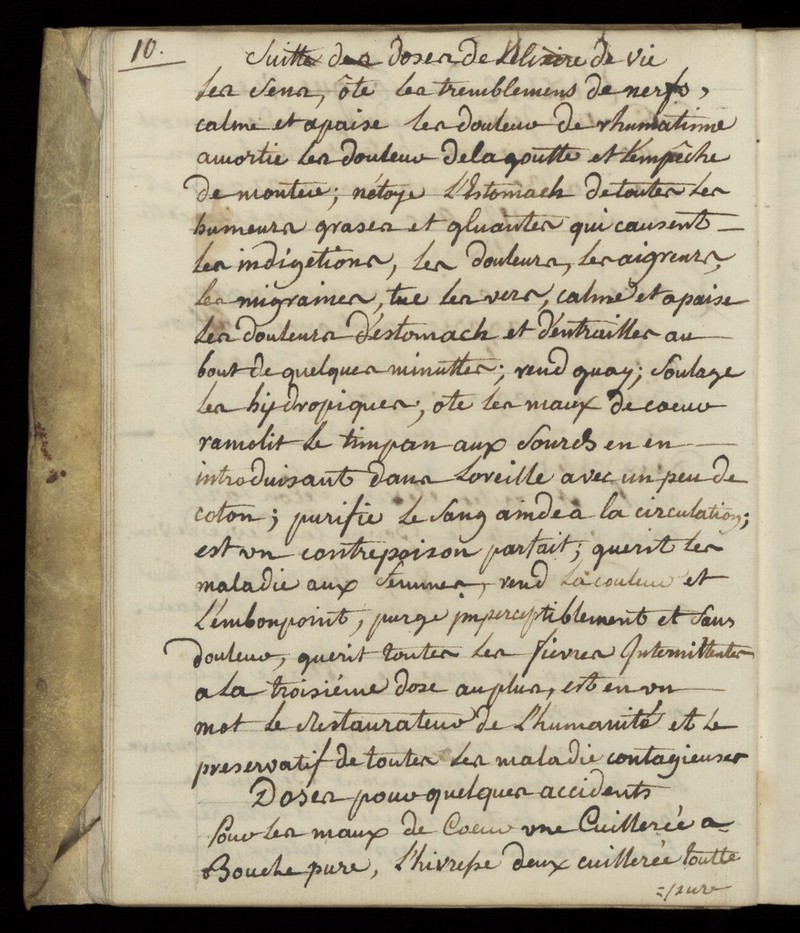 10.
Suitte des doses de L'elixire de vie
Les sens, ôte les tremblemens de nerfs,
calme et apaise les douleur de rhumatisme
amortie les douleur de la goutte et l'empêche
de monter; nétoye L'Estomach de toutes Les
humeurs grases et gluantes qui causent
les indigetions, les douleurs, les aigreurs,
les migraines, tue les vers, calme et apaise
Les douleurs d'éstomach et d'éntrailles au
bout de quelques minuttes; rend guay; soulage
les hydropiques, ote les maux de coeur
ramolit Le timpan aux sourds en en
introduisant dans Loreille avec un peu de
coton; purifie Le sang ainde a la circulation;
est un contrepoison parfait; querit les
maladie aux femmes, rend La couleur et
L'émbonpoint, purge jmperceptiblement et sans
douleur, querit toutes Les fiévres Intermittentes
a La troisiéme dose au plus, est en un
mot Le Restaurateur de L'humanité et Le
preservatif de toutes Les maladie contagieuses
Doses pour quelques accidents
Pour Les maux de Coeur une Cuillerée a
Bouche pure, L'hivresse deux cuillerée toutte
=pure